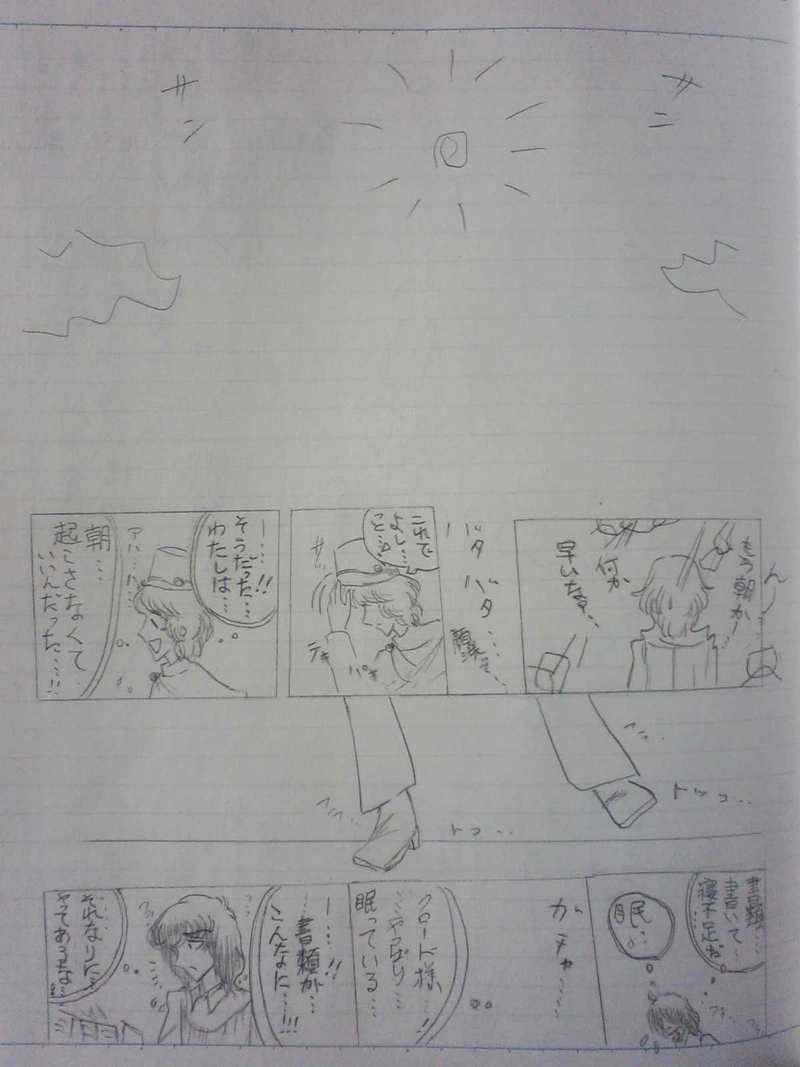 サン
サン
もう朝かー
ん〜
何か
早いな…
バタ
バタ…
これで
よし…
こと…
テキ
パキ
ー…!!
そうだった…
わたしは…
アハ…ハ…
朝…
起こさなくて
いいんだった…!!
トッコ…
トコ…
書類…
書いて…
寝不足か
眠…
フラ…
フラ
ガチャ…
クロード様…!
…やっぱり…
眠っている…
ー…!!
書類が…
こんなに…!!!
それなりに…
やってあるな…